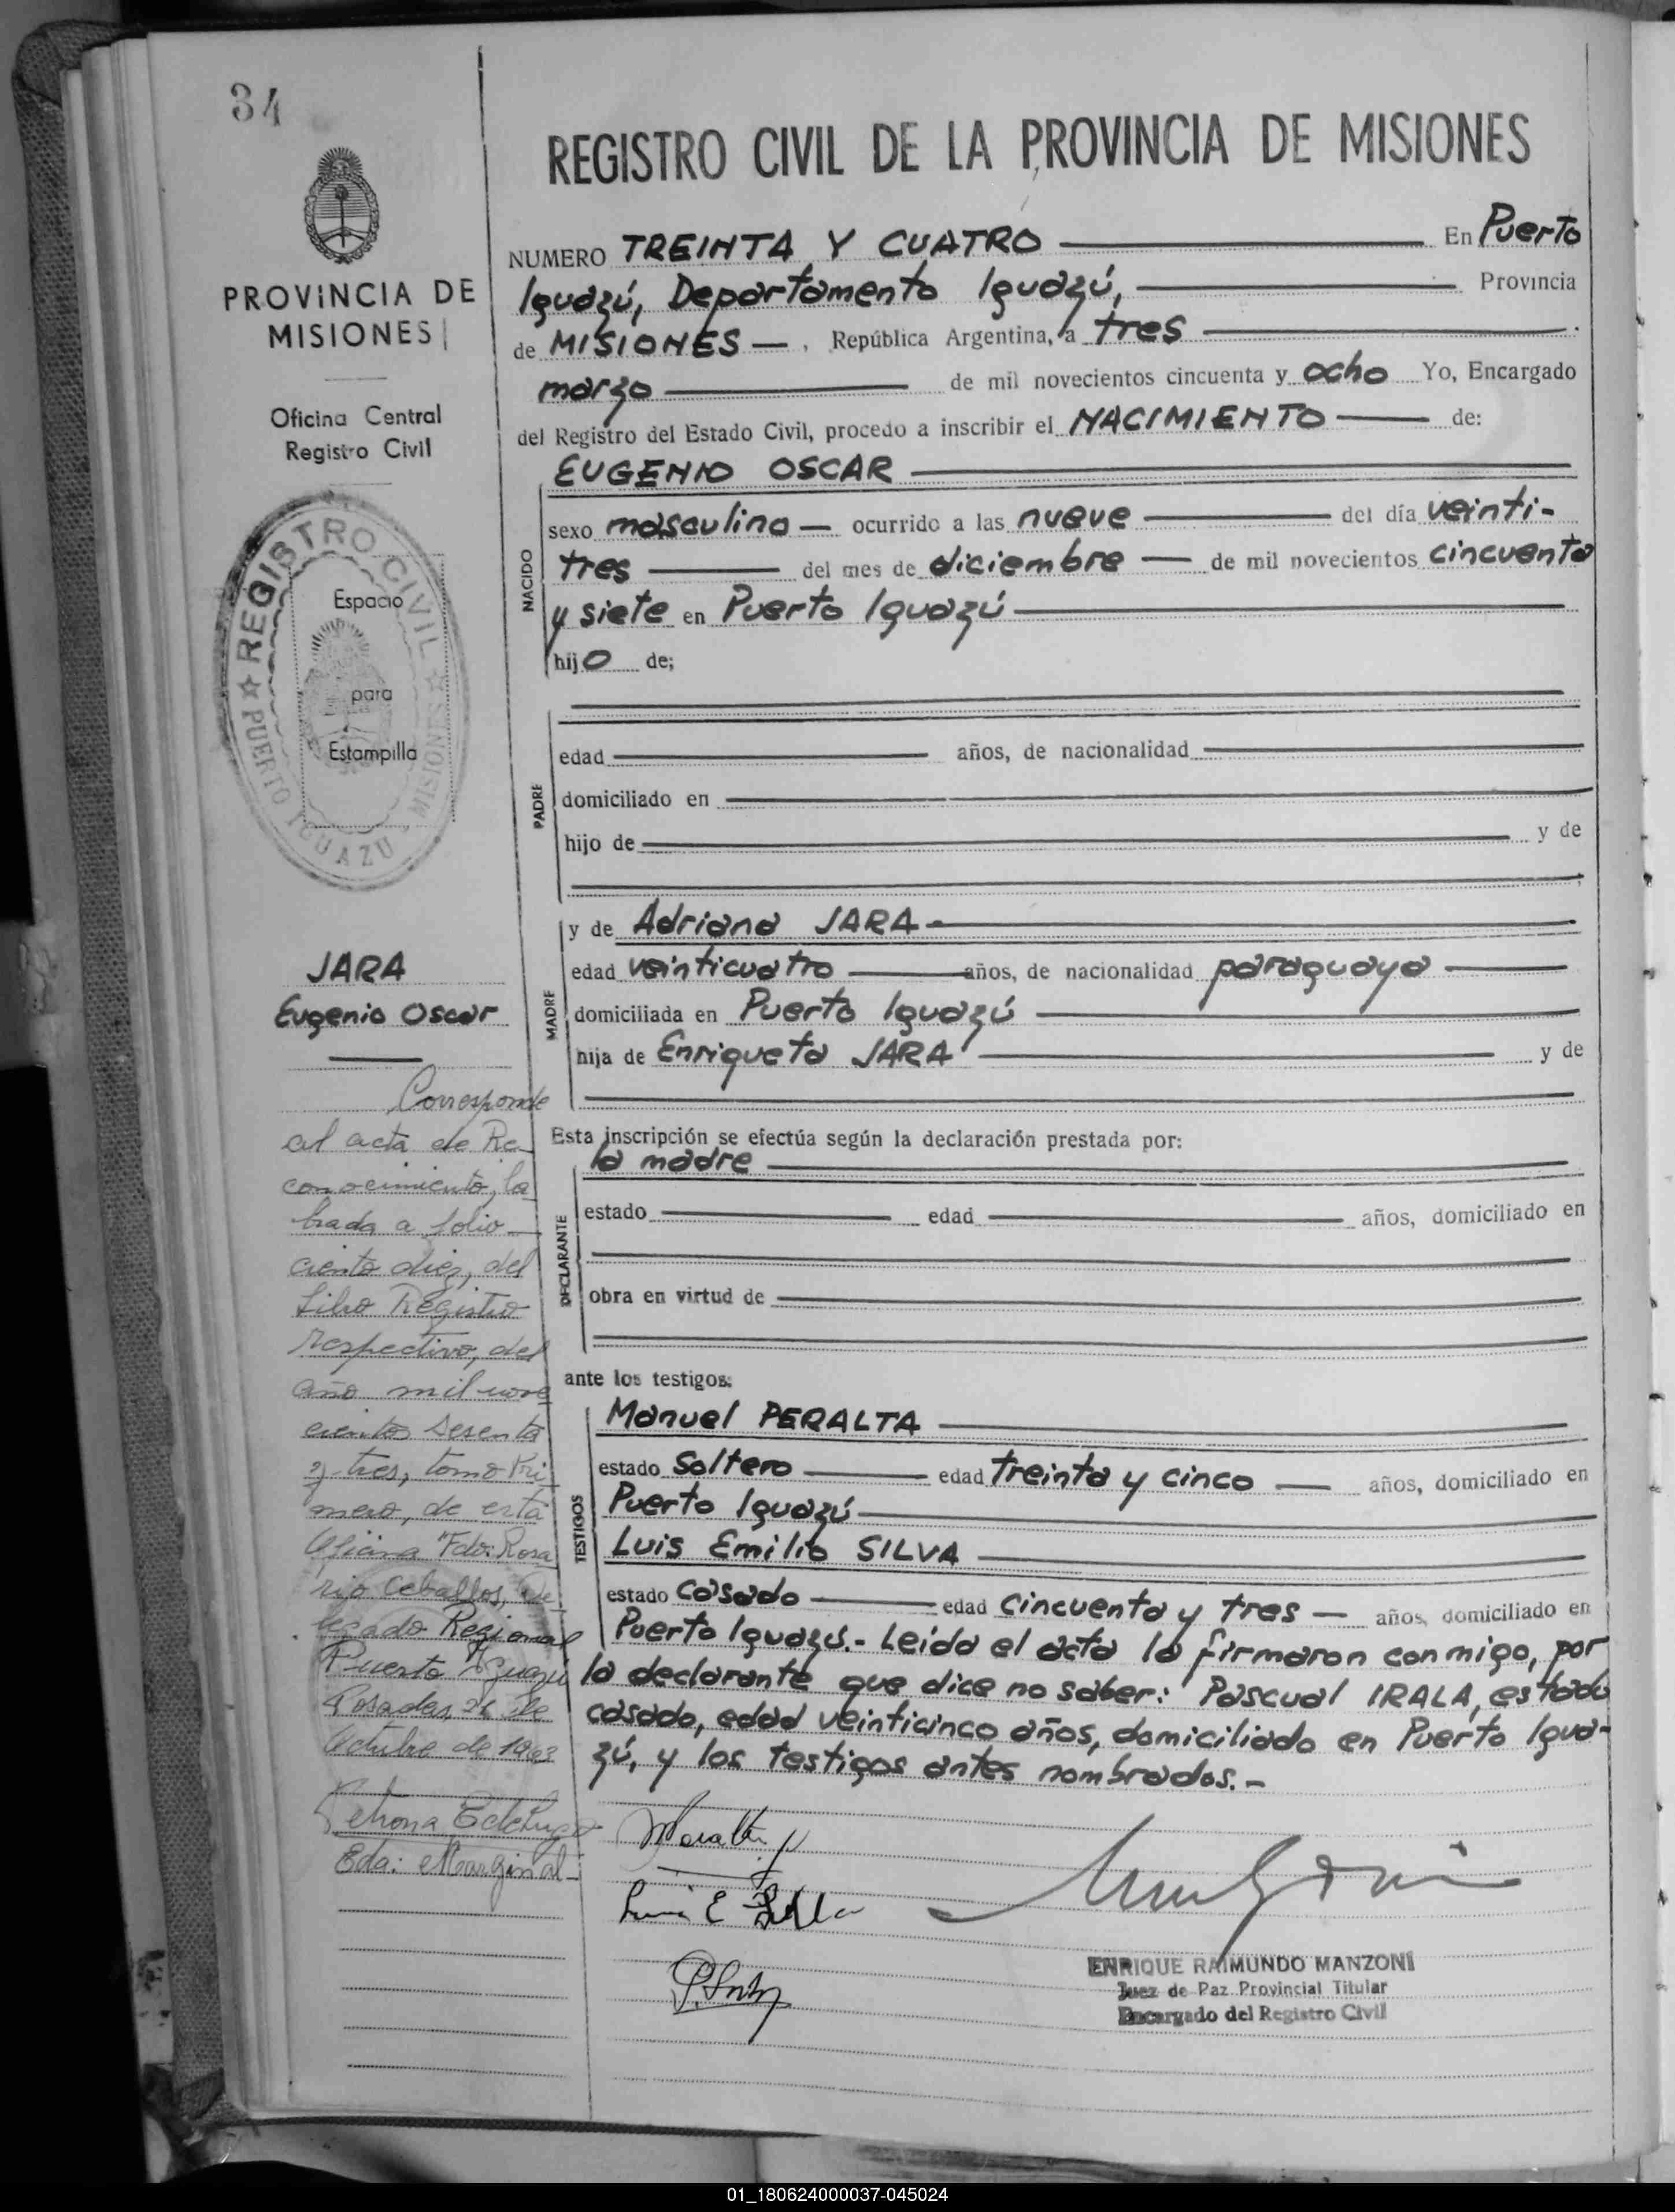 34
PROVINCIA DE
MISIONES
Oficina Central
Registro Civil
REGISTRO CIVIL
PUERTO IGUAZU MISIONES
Espacio
para
Estampilla
JARA
Eugenio Oscar
Corresponde
al acta de Re-
conocimiento, la
brada a folio
ciento diez, del
Libro Registro
respectivo, del
año mil nove
cientos sesenta
y tres, tomo Pri
mero, de esta
Oficina "Fdo: Rosa
rio Ceballos, De-
legado Regional
Puerto Iguazú
Posadas, 26 de
Octubre de 1963
Petrona
Eda: Marginal-
REGISTRO CIVIL DE LA PROVINCIA DE MISIONES
NUMERO TREINTA Y CUATRO En Puerto
Iguazú, Departamento Iguazú, Provincia
de MISIONES — , República Argentina, a tres
marzo de mil novecientos cincuenta y ocho Yo, Encargado
del Registro del Estado Civil, procedo a inscribir el NACIMIENTO de:
EUGENIO OSCAR
NACIDO
sexo masculino — ocurrido a las nueve del día veinti-
tres del mes de diciembre — de mil novecientos cincuenta
y siete en Puerto Iguazú
hijo de;
PADRE
edad años, de nacionalidad
domiciliado en
hijo de y de
MADRE
y de Adriana JARA
edad veinticuatro años, de nacionalidad paraguaya
domiciliada en Puerto Iguazú
hija de Enriqueta JARA y de
Esta inscripción se efectúa según la declaración prestada por:
la madre
DECLARANTE
estado edad años, domiciliado en
obra en virtud de
ante los testigos:
TESTIGOS
Manuel PERALTA
estado Soltero edad treinta y cinco — años, domiciliado en
Puerto Iguazú
Luis Emilio SILVA
estado casado edad cincuenta y tres — años, domiciliado en
Puerto Iguazú.- Leída el acta la firmaron conmigo, por
la declarante que dice no saber: Pascual IRALA, estado
casado, edad veinticinco años, domiciliado en Puerto Igua-
zú, y los testigos antes nombrados.-
Luis E Silva
ENRIQUE RAIMUNDO MANZONI
Juez de Paz Provincial Titular
Encargado del Registro Civil
01_180624000037-045024